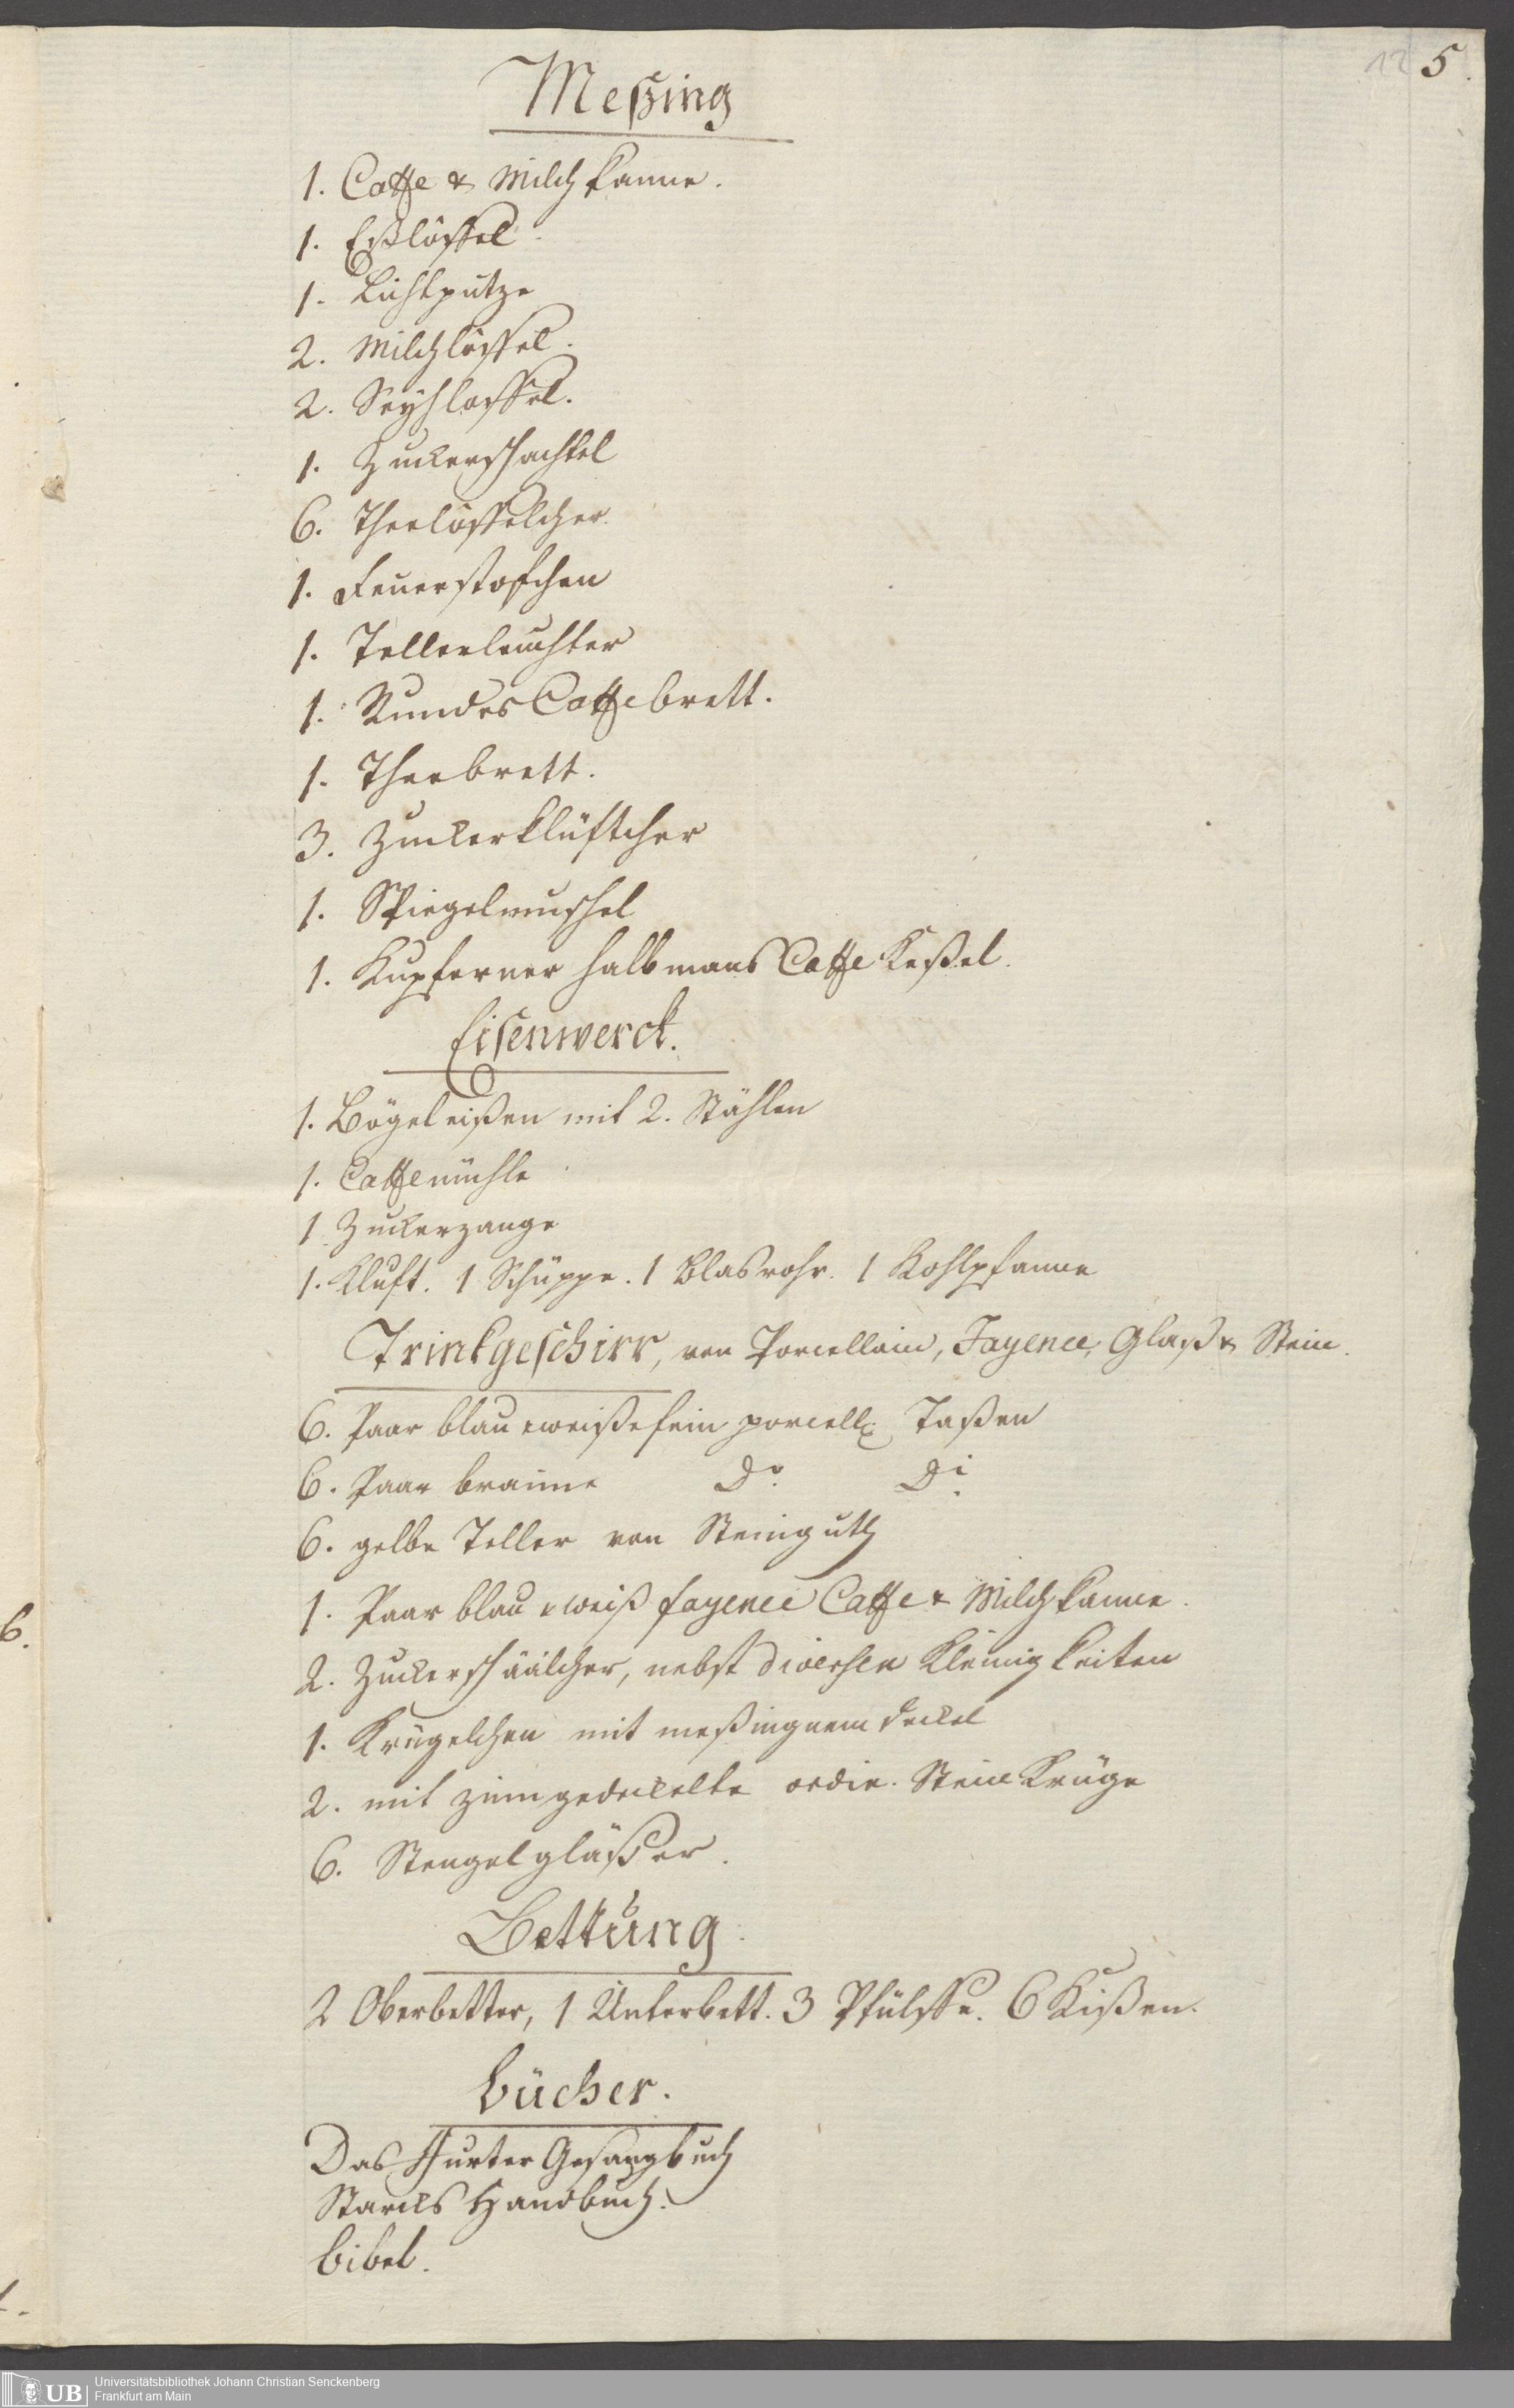 12 5.
Meßing
1. Caffe & Milchkanne.
1. Eßlöffel.
1. Lichtputze
2. Milchlöffel.
2. Seyhloffel.
1. Zuckerschachtel
6. Theelöffelcher.
1. Feuerstofchen
1. Tellerleuchter
1. Rundes Caffebrett.
1. Theebrett.
3. Zuckerklüftcher
1. Spiegelmuschel
1. Kupferner halbmaas Caffe Keßel.
Eisenwerck.
1. Bögeleißen mit 2. Stählen
1. Caffemühle
1 Zuckerzange
1. Kluft. 1 Schüppe. 1 Blasrohr. 1 Kohlpfanne
Trinkgeschirr, von Porcellain, Fayence, Glaß & Stein.
6. Paar blau & weiße fein porcell. Taßen
6. Paar braune Do. Di.
6. gelbe Teller von Steinguth
1. Paar blau & weiß fayence Caffe & Milchkanne.
2. Zuckerschäälcher, nebst diversen Kleinigkeiten
1. Krügelchen mit meßingnem Deckel
2. mit zinn gedeckelte ordin. Stein Krüge
6. Stengelgläßer.
Bettung.
2 Oberbetter, 1 Unterbett. 3 Pfülffe. 6 Kißen.
Bücher.
Das Ffurter Gesangbuch
Starcks Handbuch.
Bibel.
6.
UB Universitätsbibliothek Johann Christian Senckenberg
Frankfurt am Main